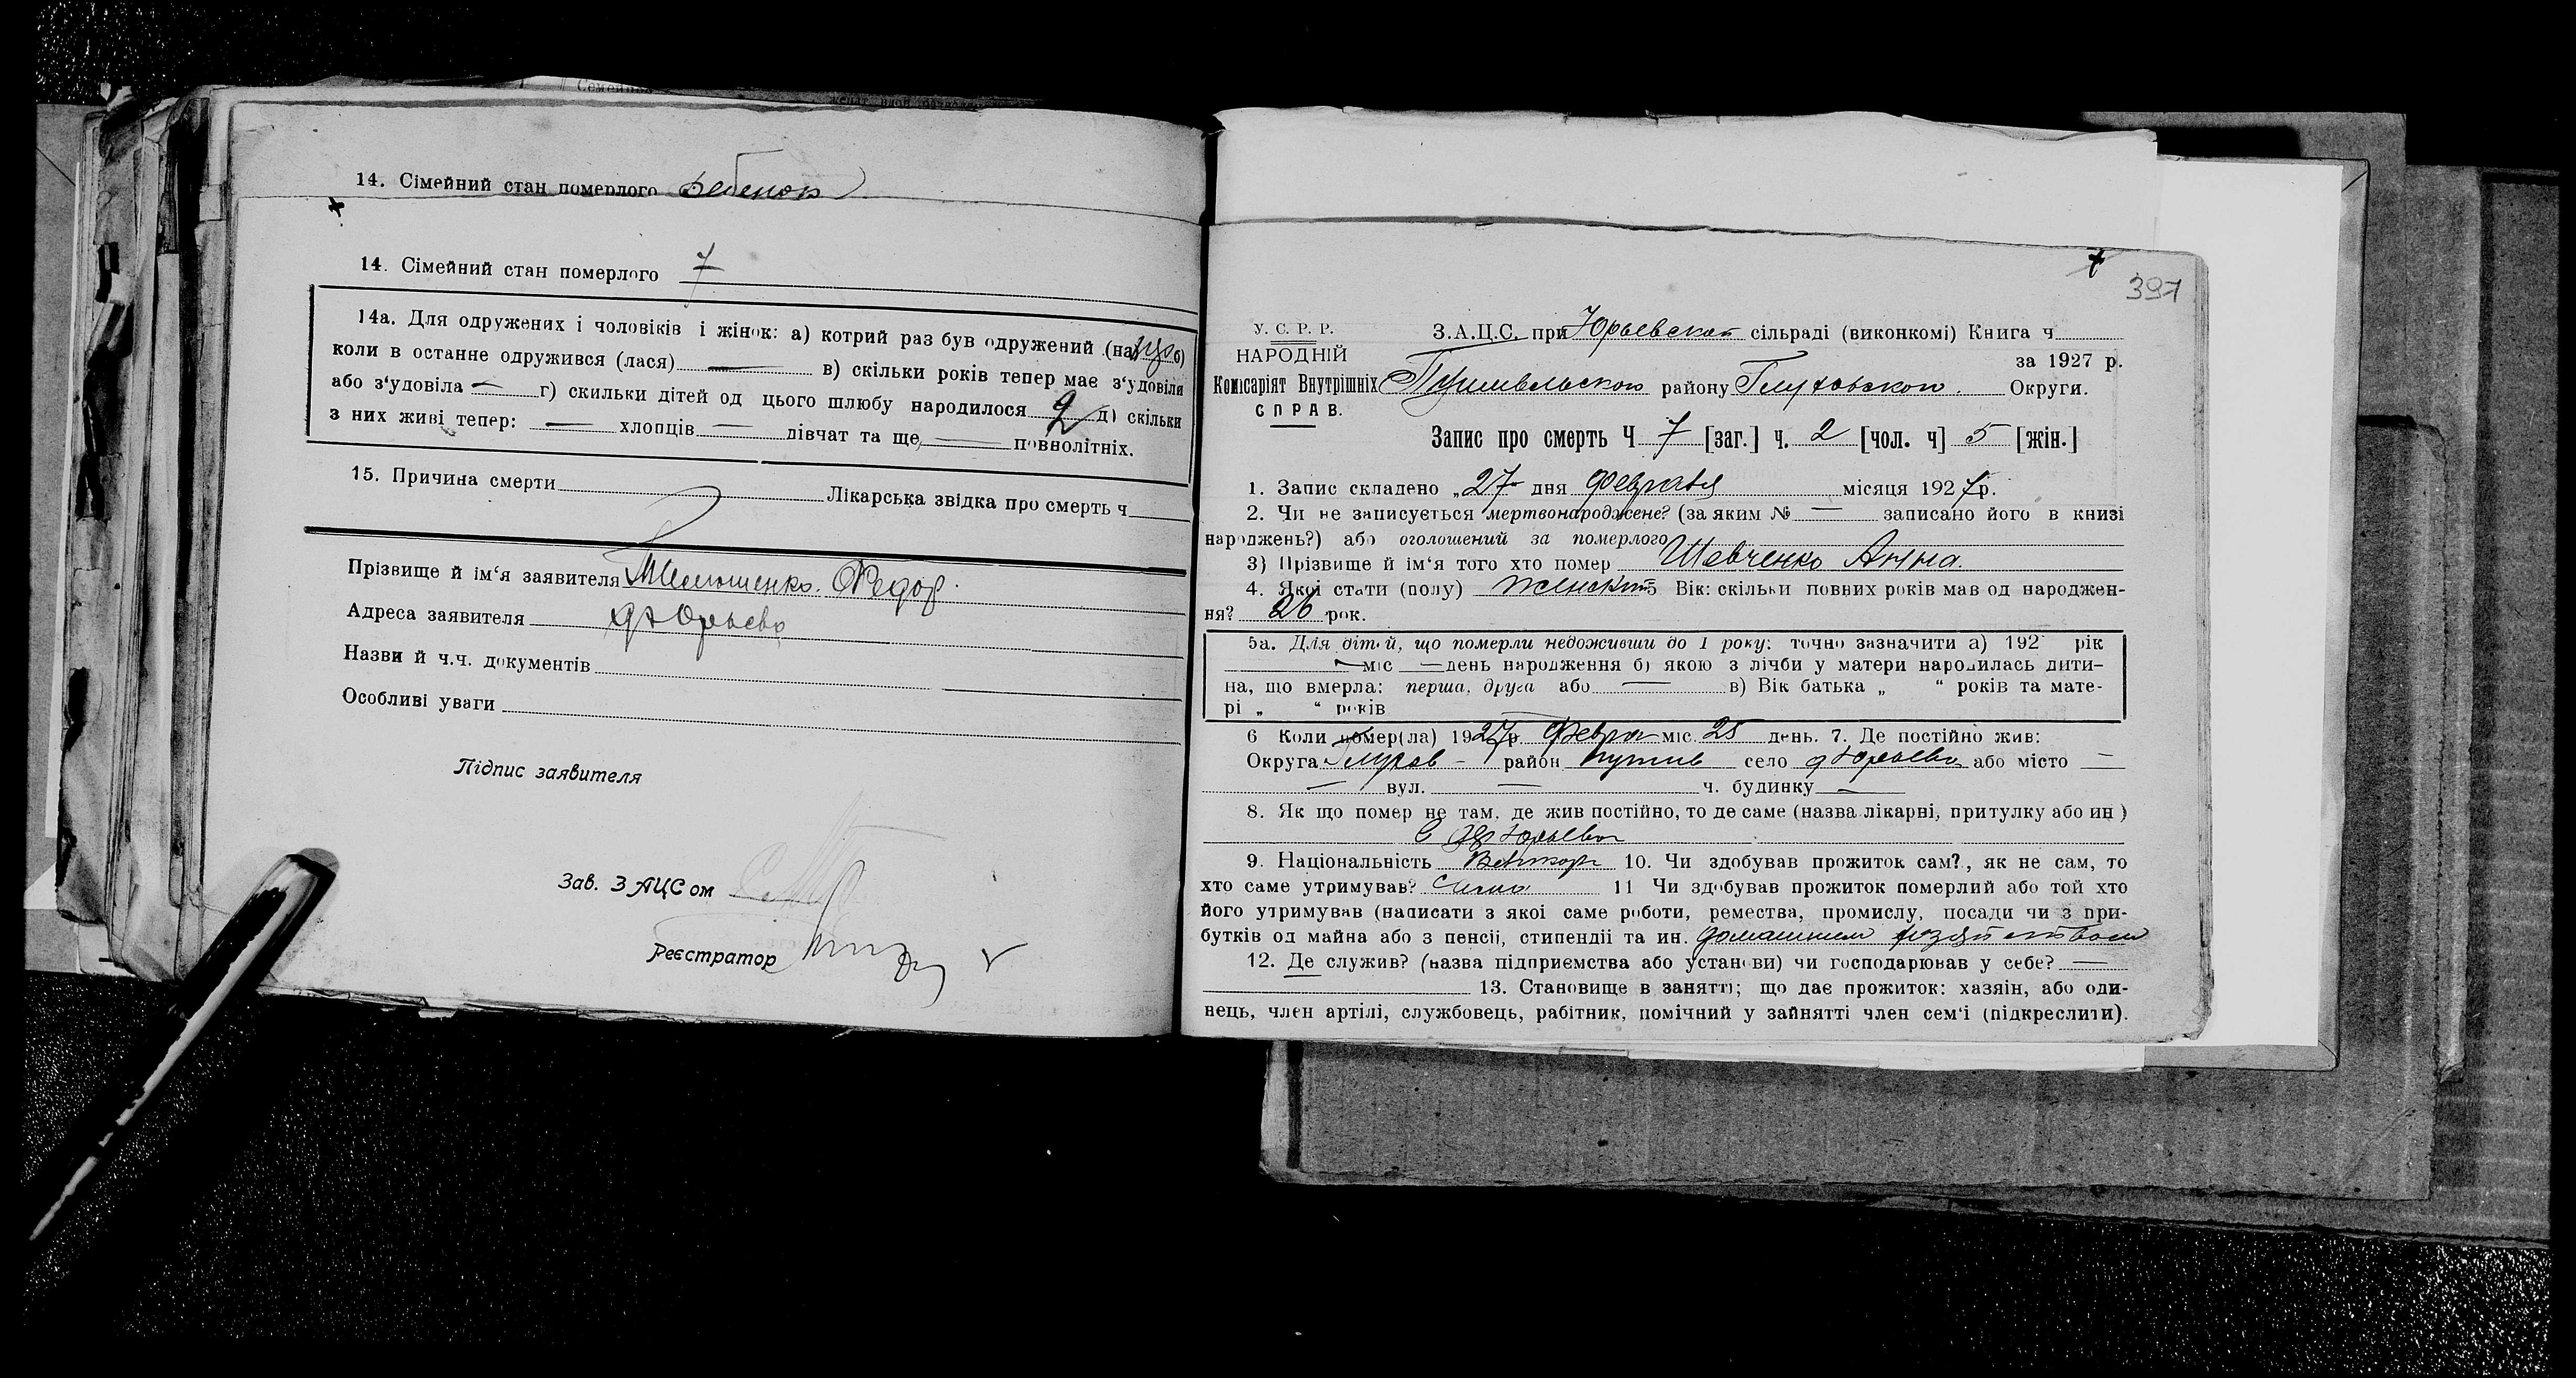 14. Сімейний стан померлого ребенок
14. Сімейний стан померлого 7
14а. Для одружених і чоловіків і жінок: а) котрий раз був одружений (на) б)
коли в останне одружився (лася) — в) скільки років тепер має з'удовіля
або з'удовіла — г) скильки дітей од цього шлюбу народилося 2 д) скільки
з них живі тепер: — хлопців — дівчат та ще — повнолітніх.
15. Причина смерти Лікарська звідка про смерть ч
Прізвище й ім'я заявителя Федор.
Адреса заявителя д Юрьево
Назви й ч.ч. документів
Особливі уваги
Підпис заявителя
Зав. ЗАЦСом
Реєстратор
397
У. С. Р. Р.
НАРОДНІЙ
Комісаріят Внутрішніх
СПРАВ.
З.А.Ц.С. при Юрьевской сільраді (виконкомі) Книга ч
за 1927 р.
Путивльского району Глуховского. Округи.
Запис про смерть Ч 7 [заг.] ч. 2 [чол. ч] 5 [жін.]
1. Запис складено „27 дня Февраля місяця 1927 р.
2. Чи не записується мертвонароджене? (за яким № — записано його в книзі
народжень?) або оголошений за померлого
3) Прізвище й ім'я того хто помер Шевченко Анна.
4. Якої стати (полу) женский Вік: скільки повних років мав од народжен-
ня? 26 рок.
5а. Для дітей, що померли недоживши до 1 року: точно зазначити а) 192 рік
— міс — день народження б) якою з лічби у матери народилась дити-
на, що вмерла: перша, друга або — в) Вік батька „ “ років та мате-
рі „ “ років
6 Коли помер(ла) 1927 р. Февра міс. 25 день. 7. Де постійно жив:
Округа Глухов - район путив село д Юрьево або місто —
— вул. — ч. будинку —
8. Як що помер не там, де жив постійно, то де саме (назва лікарні, притулку або ин)
в др Юрьево
9. Національність 10. Чи здобував прожиток сам?, як не сам, то
хто саме утримував? Сама 11 Чи здобував прожиток померлий або той хто
його утримував (написати з якої саме роботи, ремества, промислу, посади чи з при-
бутків од майна або з пенсії, стипендії та ин. домашним
12. Де служив? (назва підприємства або установи) чи господарював у себе? —
13. Становище в занятті; що дає прожиток: хазяін, або оди-
нець, член артілі, службовець, рабітник, помічний у зайнятті член сем'і (підкреслити).